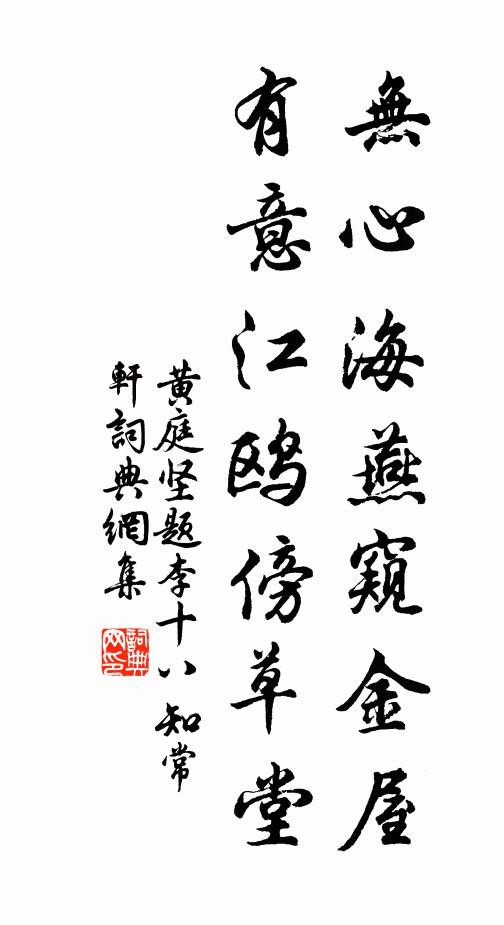 無心海燕窺金屋
有意江鸥傍草堂
黄庭坚题李十八知常
軒詞典網集
詞典
网印